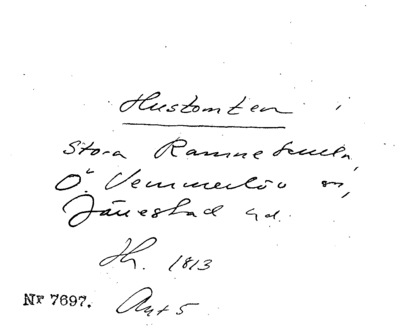 Hustomten i
Stora Ramnekulla,
Ö. Vemmerlöv sn,
Järrestad hd.
Hh. 1813
Nr 7697. Avt 5